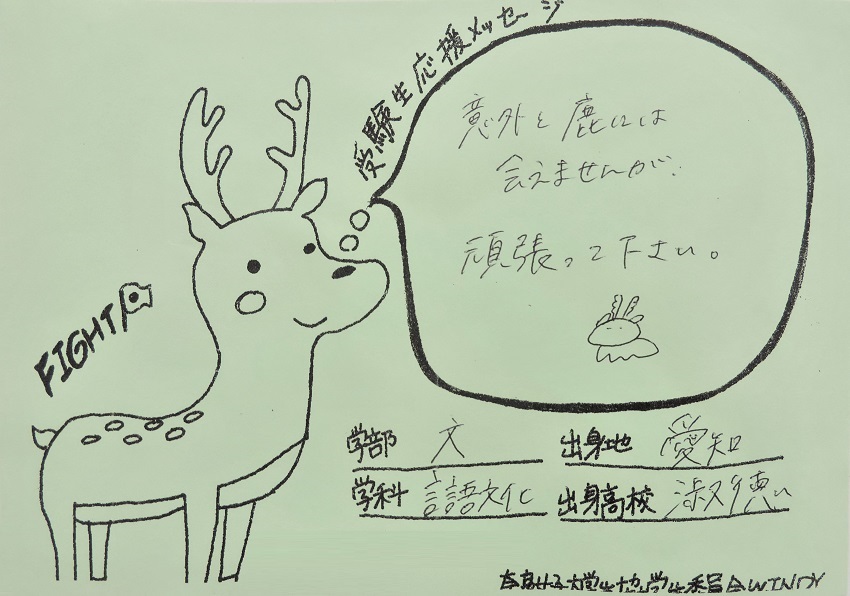 受験生応援メッセージ
意外と鹿には
会えませんが、
頑張って下さい。
FIGHT
学部 文
出身地 愛知
学科 言語文化
出身高校 淑徳
奈良女子大学生協学生委員会WINDY